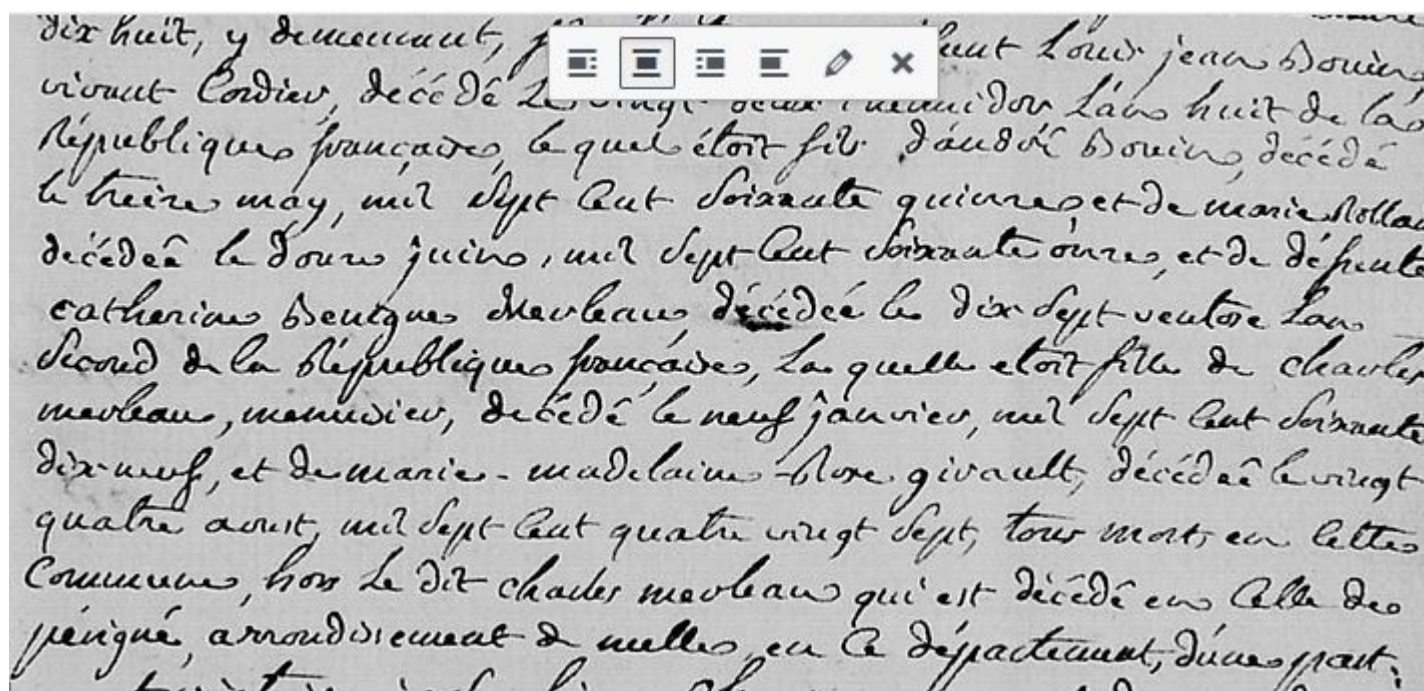 dix huit, y demeurant, Louis jean Bouin,
vivant Cordier, décédé Le vingt deux thermidor L'an huit de la
République française, le quel étoit fils d'andré Bouin, décédé
le treize may, mil sept Cent Soixante quinze, et de marie Rollan
décédeé le douze juin, mil sept Cent Soixante onze, et de défunte
catherine Benigne Merleau, décédeé le dix Sept ventose L'an
Second de la République française, La quelle etoit fille de charles
merleau, menuisier, décédé le neuf janvier, mil sept Cent Soixante
dix-neuf, et de marie-madelaine-Rose girault, décédeé le vingt
quatre aoust, mil sept Cent quatre vingt sept, tous morts en Cette
Commune, hors Le dit charles merleau qui est décédé en Celle de
périgné, arrondissement de melle, en Ce département, d'une part;